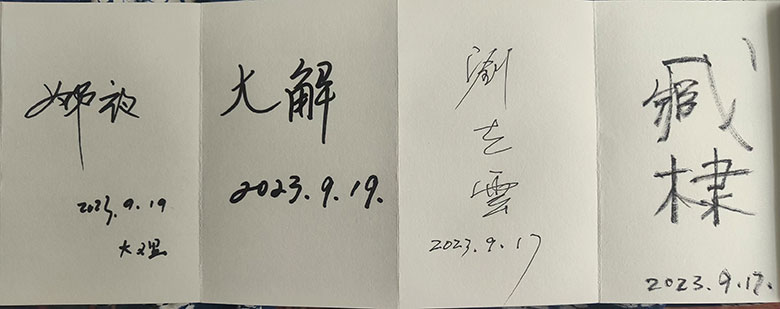 娜夜
2023.9.19
大理
大解
2023.9.19.
劉立雲
2023.9.17
臧棣
2023.9.17.